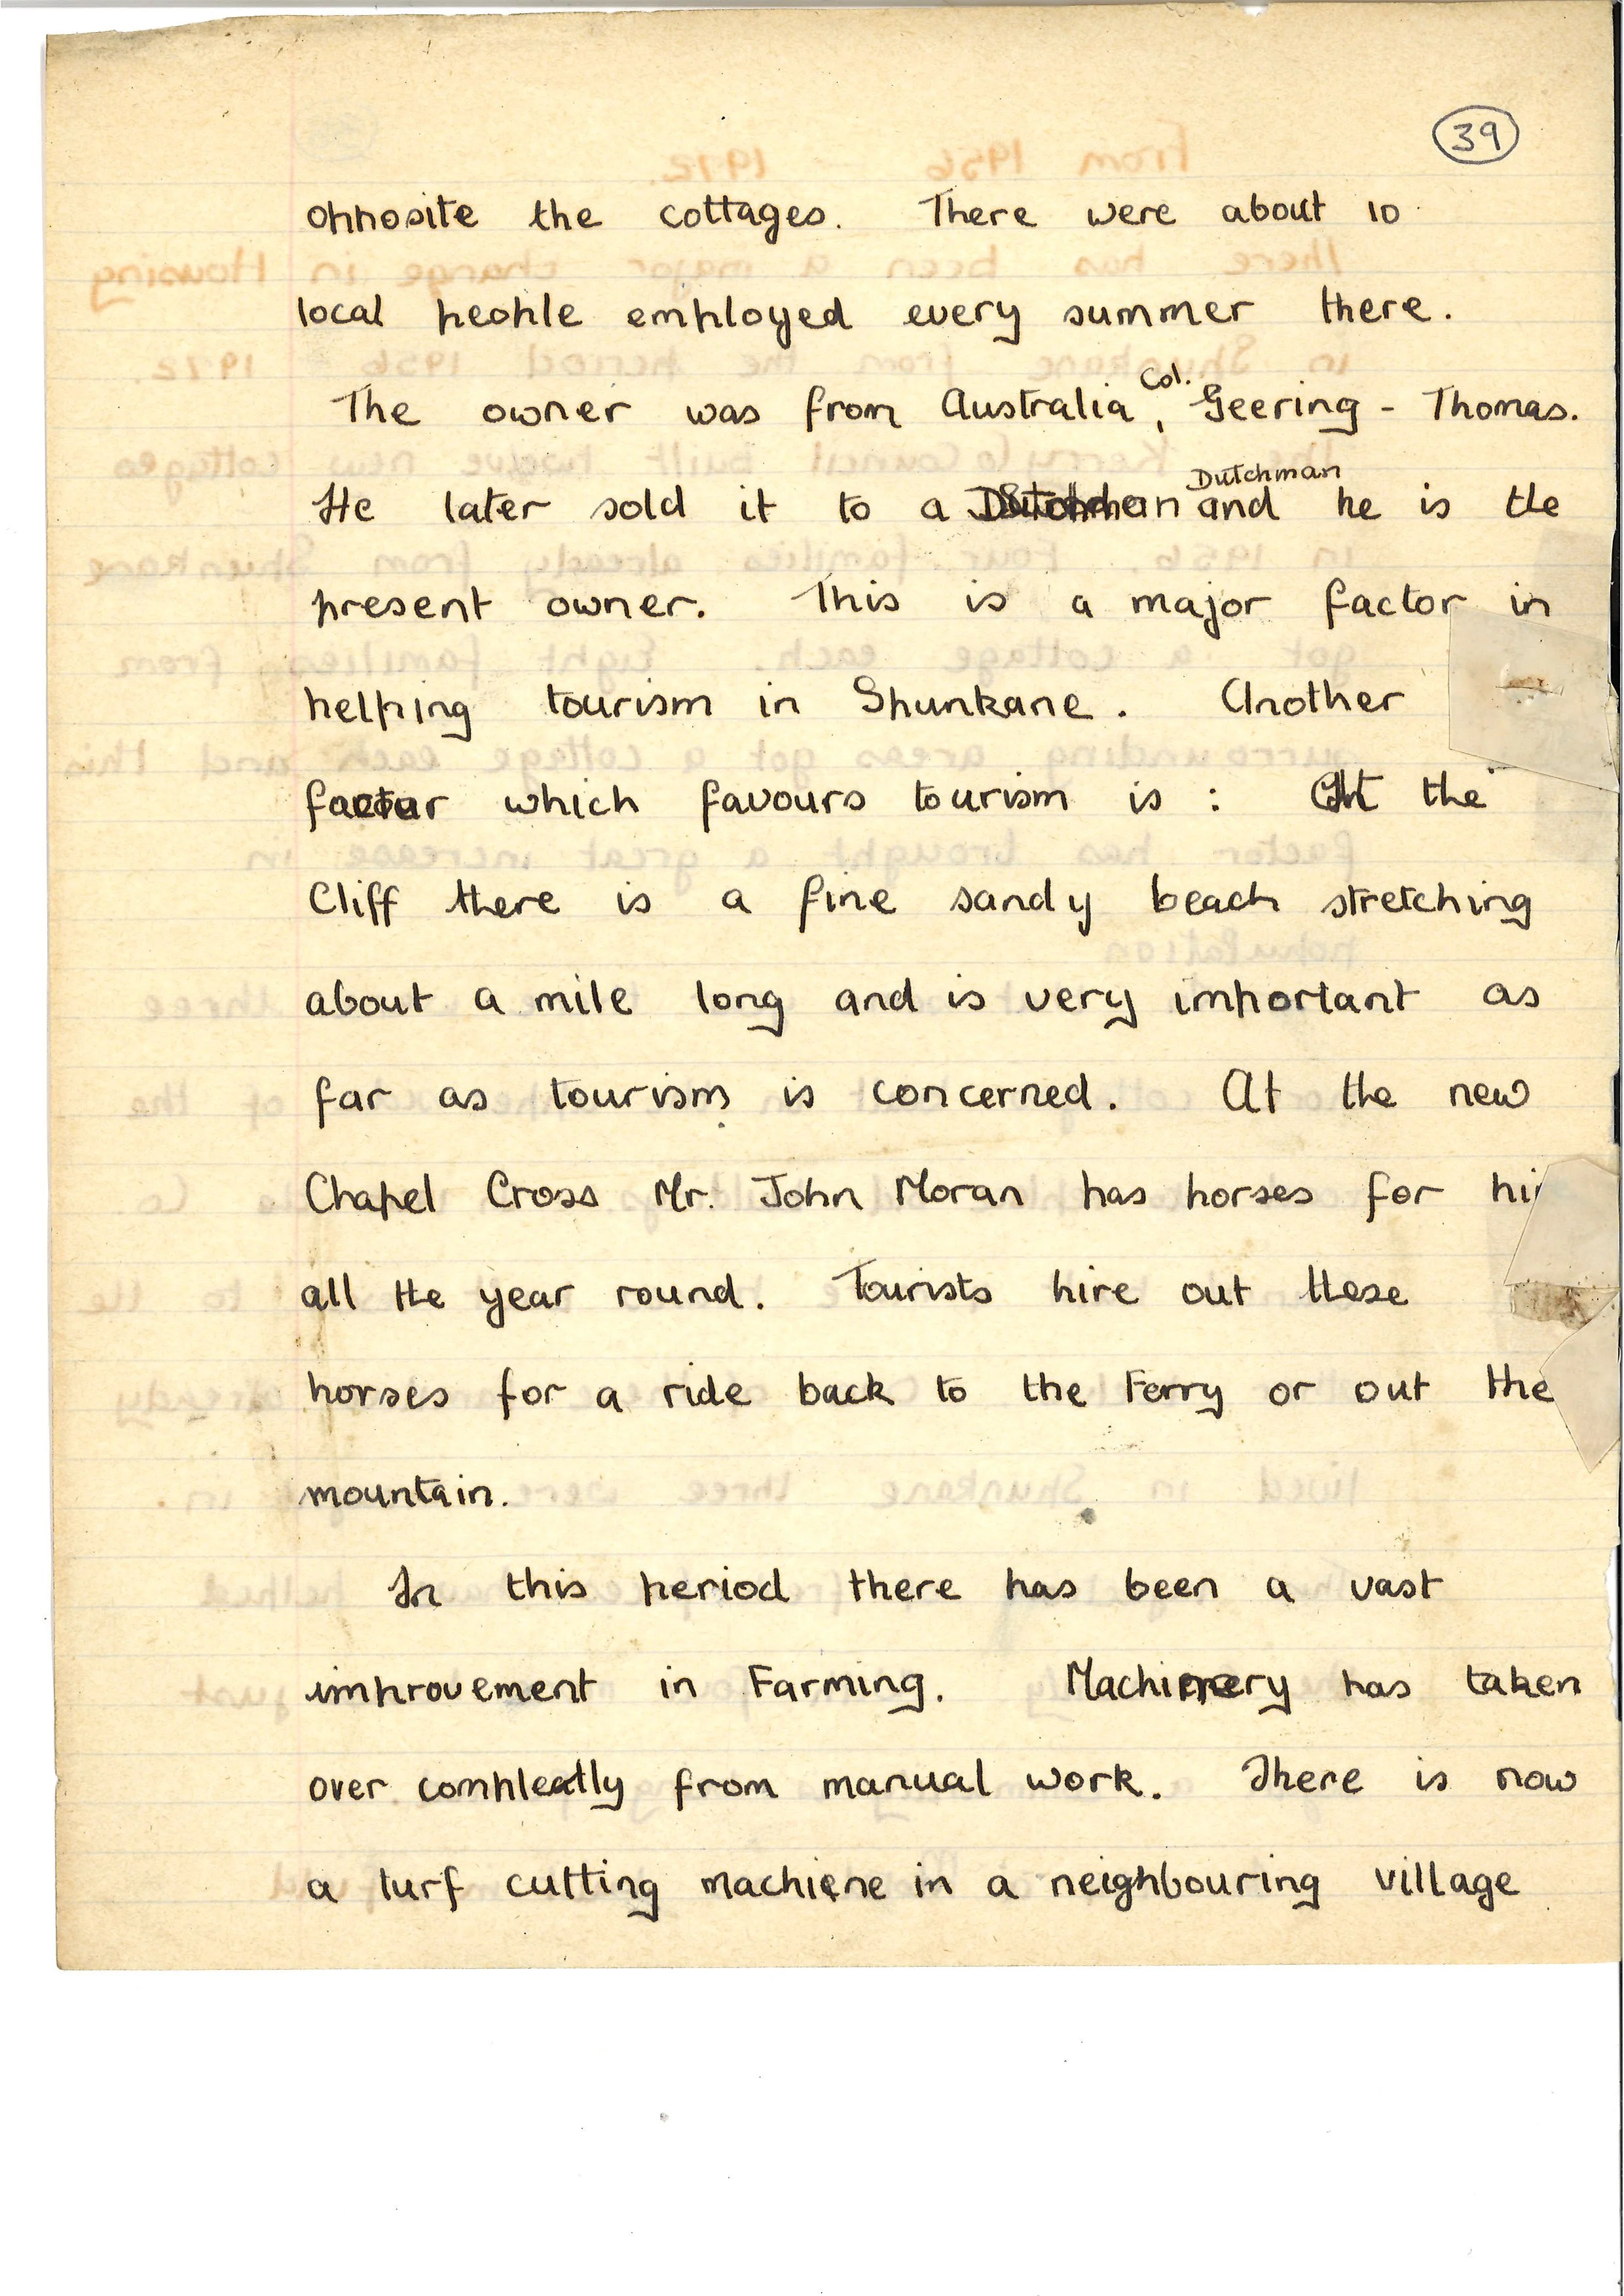 39
opposite the cottages. There were about 10
local people employed every summer there.
The owner was from Australia, Col. Geering - Thomas.
He later sold it to a Dutchman and he is the
present owner. This is a major factor in
helping tourism in Shunkane. Another
factor which favours tourism is : At the
Cliff there is a fine sandy beach stretching
about a mile long and is very important as
far as tourism is concerned. At the new
Chapel Cross Mr. John Moran has horses for
all the year round. Tourists hire out these
horses for a ride back to the Ferry or out the
mountain.
In this period there has been a vast
improvement in Farming. Machinery has taken
over compleatly from manual work. There is now
a turf cutting machiene in a neighbouring village